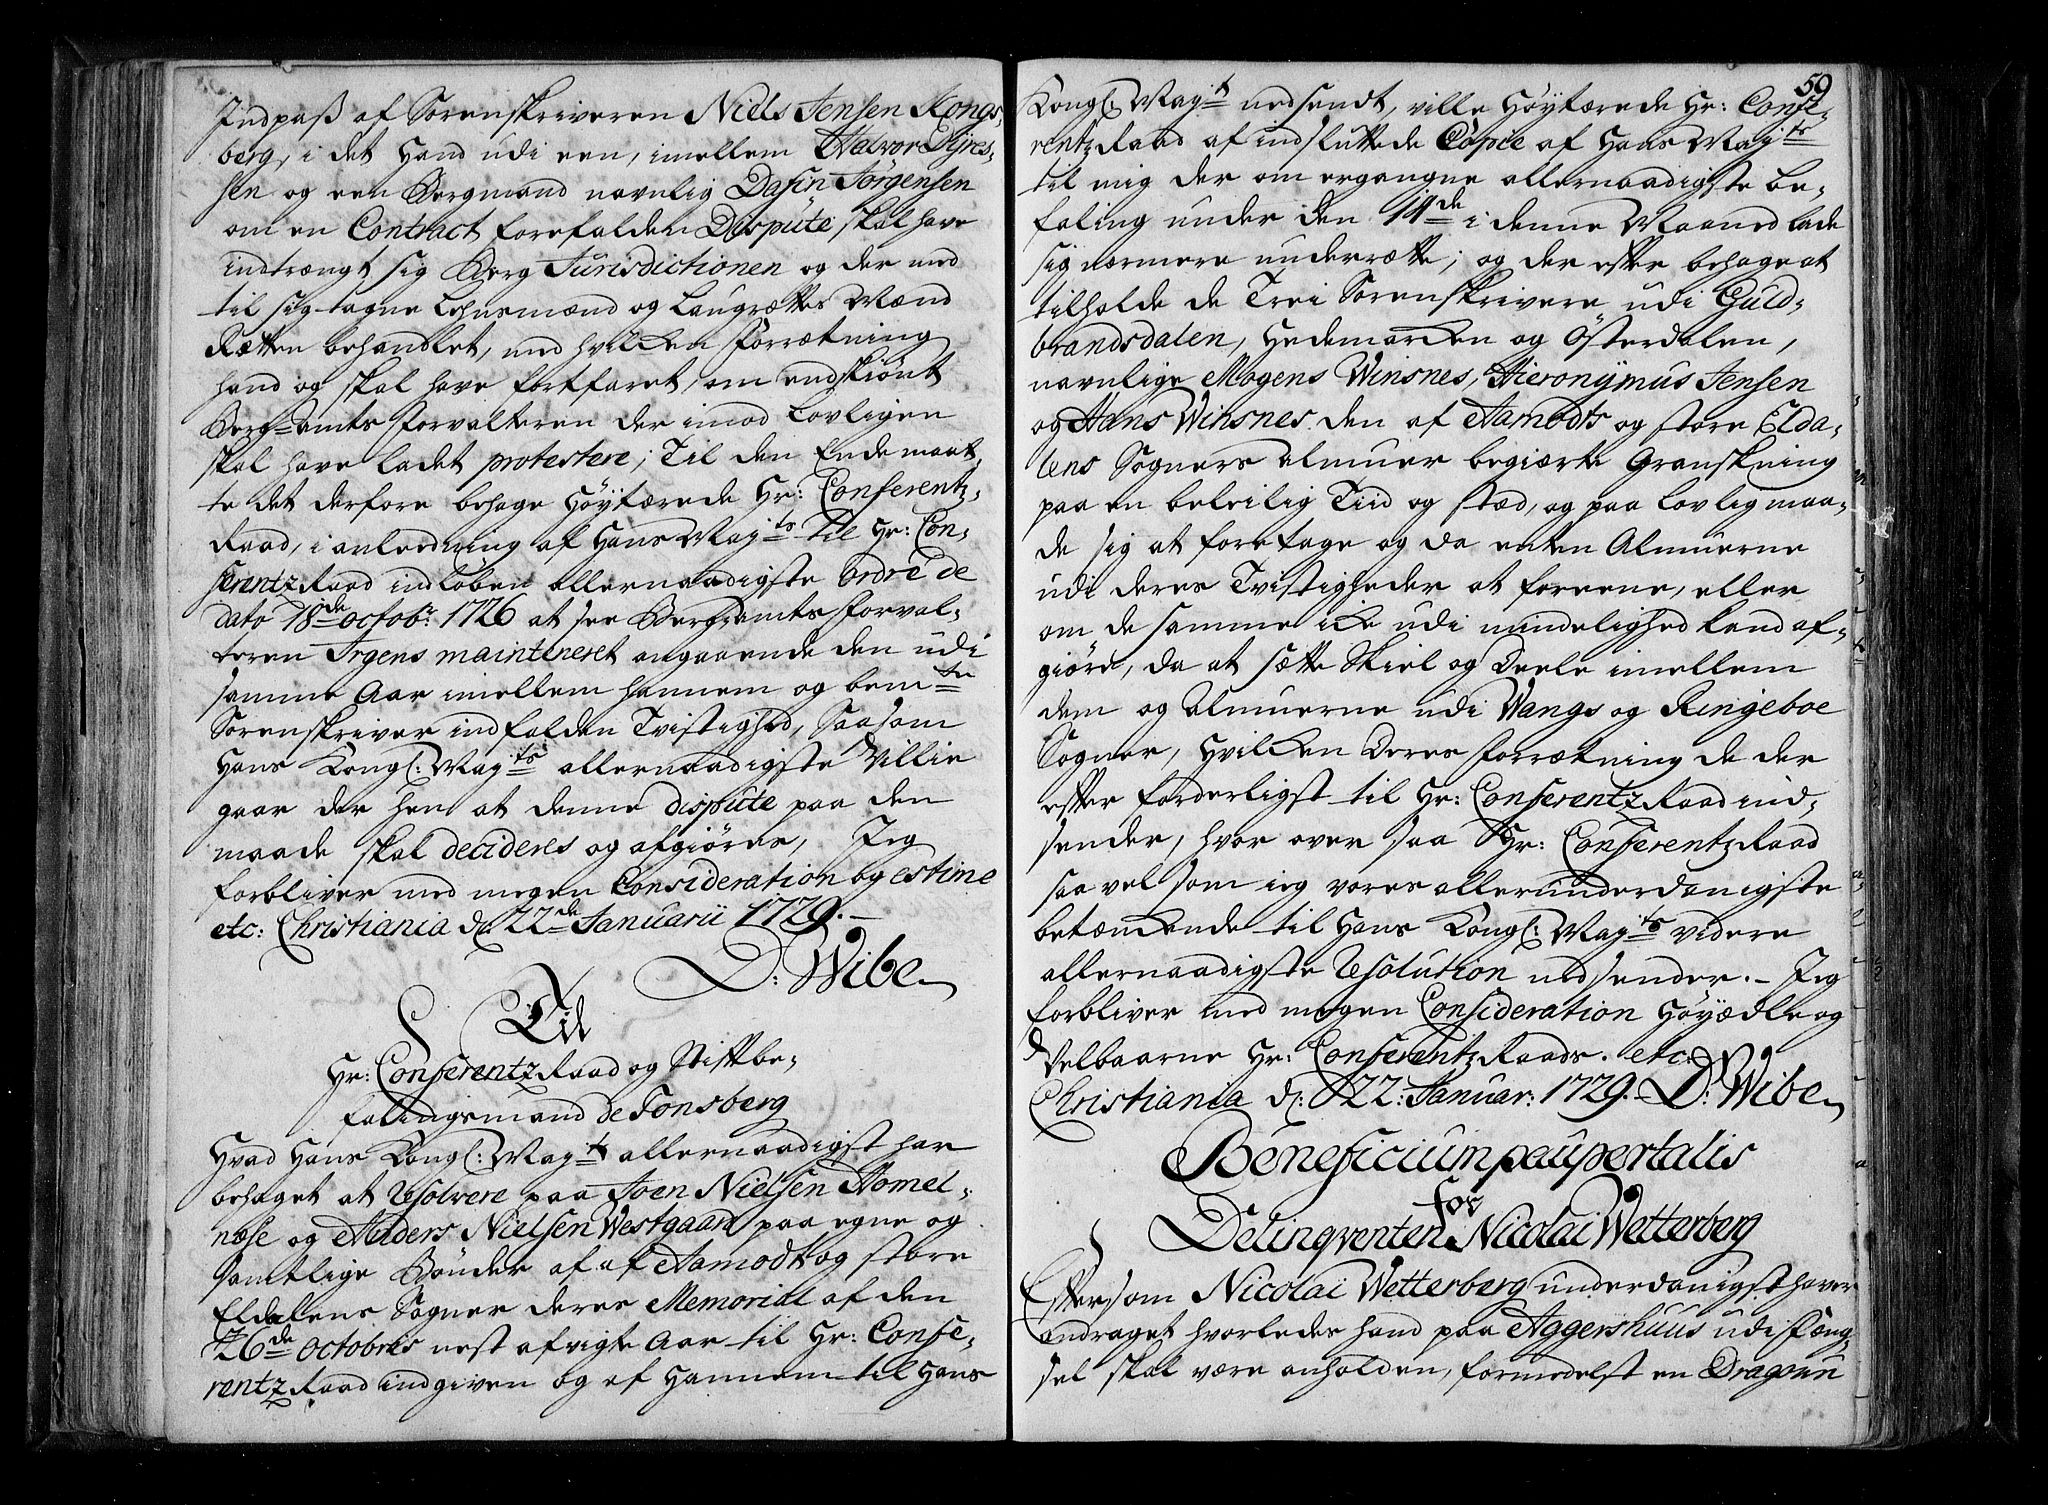 Indpaß af Sorenskriveren Niels Jensen Kongs-
berg, i det Hand udi een, imellem Halvor Syver-
sen og een Bergmand navnlig Dafin Jörgensen
om en Contract forefalden Dispüte, skal have
indtrængt sig Berg Jurisdictionen og der med
til sig tagne Lehnsmænd og Laugrettes Mænd
Rætten behandlet, med hvilken Forretning
hand og skal have fortfaret, om endskiönt
Berg-Amts Forvalteren der imod Lovligen
skal have ladet protestere; Til den Ende maat-
te det derfore behage Höytærede Hr: Conferentz-
Raad, i anledning af Hans May:ts til Hr: Con-
ferentz Raad indlöben allernaadigste Ordre de
dato 18de octobr: 1726 at see Berg-Amts Forval-
teren Irgens maintineret angaaende den udi
samme Aar imellem hannem og bem:te
Sorenskriver indfalden Tvistighed, Saasom
Hans Kongl: May:ts allernaadigste Villie
gaar der hen at denne dispüte paa den
maade skal decideres og afgiöres, Jeg
forbliver med megen Consideration og estime
etc: Christiania d: 22de Januarii 1729.—
D: Wibe
Til
Hr: Conferentz Raad og Stiftbe-
falingsmand de Tonsberg
Hvad Hans Kongl: May:t allernaadigst har
behaget at Resolvere paa Joen Nielsen Homel-
næse og Anders Nielsen Westgaard paa egne og
samtlige Bönder af af Aamodt og store
Eldalens Sogner deres Memorial af den
26de Octobris nest afvigte Aar til Hr: Confe-
rentz Raad indgiven og af Hannem til Hans
59
Kongl: May:t nedsendt, ville Höytærede Hr: Confe-
rentz Raad af indsluttede Copie af Hans May:ts
til mig der om ergangne allernaadigste Be-
faling under den 14de i denne Maaned lade
sig nærmere underrette; og der efter behage at
tilholde de Trei Sorenskrivere udi Guld-
brandsdalen, Hedemarken og Österdalen,
navnlige Mogens Winsnes, Hieronymus Jensen
og Hans Winsnes den af Aamodts og store Elda-
lens Sogners Almuer begiærte Granskning
paa en beleilig Tiid og stæd, og paa Lovlig maa-
de sig at foretage og da enten Almuerne
udi deres Tvistigheder at foreene, eller
om de samme icke udi mindelighed kand af-
giöre, da at sætte Skiel og Deele imellem
dem og Almuerne udi Wangs og Ringeboe
Sogner, Hvilken deres Forretning de der
efter forderligst til Hr: Conferentz Raad ind-
sender, hvor over saa Hr: Conferentz Raad
saa vel som ieg vores allerunderdanigste
betænkende til Hans Kongl: May:ts videre
allernaadigste Resolution nedsender.— Jeg
forbliver med megen Consideration Höyædle og
Velbaarne Hr: Conferentz Raads. etc.
Christiania d: 22: Januar: 1729.— D: Wibe
Beneficium paupertatis
for
Delinqventen Nicolai Wetterberg
Eftersom Nicolai Wetterberg underdanigst haver
andraget hvorledes hand paa Aggershuus udi Fæng-
sel skal være anholden, formedelst en Dragoun